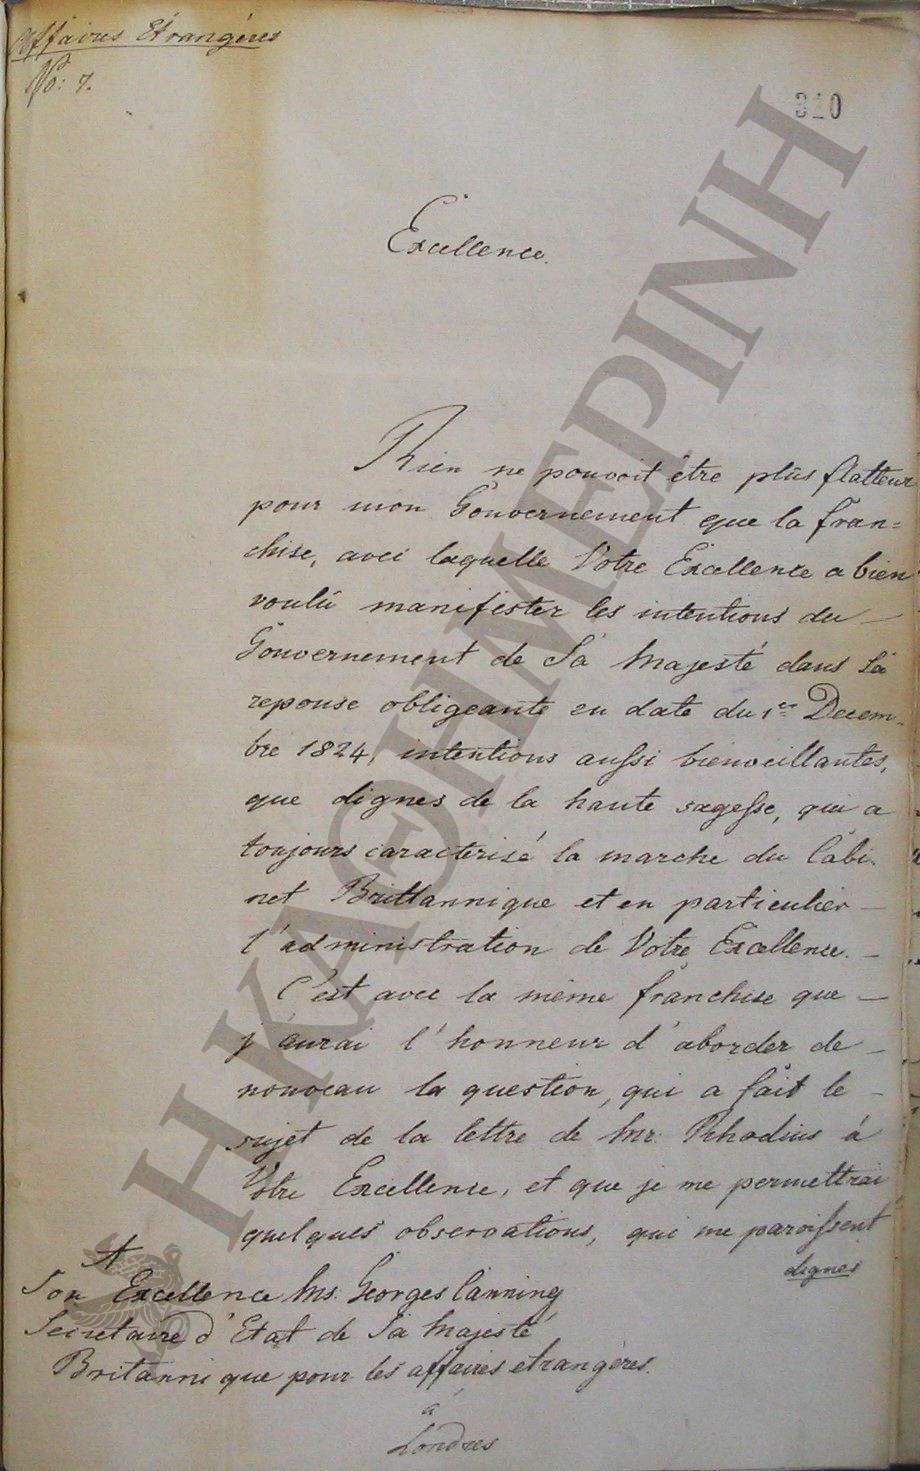 Affaires Étrangéres
No: 7.
310
Excellence.
Rien ne pouvoit être plus flatteur
pour mon Gouvernement que la fran=
chise, avec laquelle Votre Excellence a bien
voulû manifester les intentions du —
Gouvernement de Sa Majesté dans Sa
reponse obligeante en date du 1er Decem-
bre 1824, intentions aussi bienveillantes,
que dignes de la haute sagesse, qui a
toujours caracterisé la marche du Cabi-
net Brittannique et en particulier —
l'administration de Votre Excellence. —
C'est avec la même franchise que —
j'aurai l'honneur d'aborder de —
nouveau la question, qui a fait le —
sujet de la lettre de Mr. Rhodius à
Votre Excellence, et que je me permettrai
quelques observations, qui me paroissent
dignes
A
Son Excellence Mr. Georges Canning
Secretaire d'Etat de Sa Majesté
Britannique pour les affaires etrangères.
à
Londres
Η ΚΑΘΗΜΕΡΙΝΗ